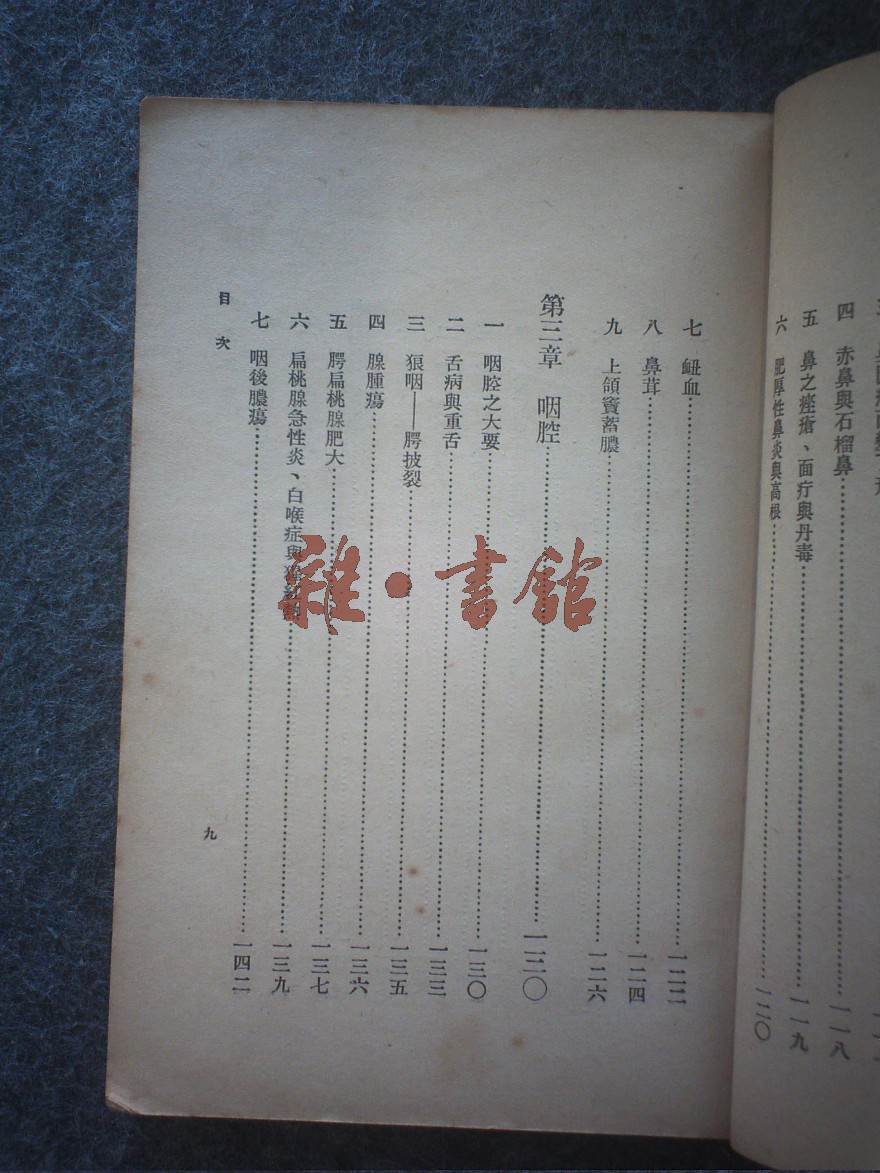 四 赤鼻與石榴鼻……一一八
五 鼻之痤瘡、面疔與丹毒……一一九
六 肥厚性鼻炎與高根……一二〇
七 衄血……一二二
八 鼻茸……一二四
九 上頜竇蓄膿……一二六
第三章 咽腔……一三〇
一 咽腔之大要……一三〇
二 舌病與重舌……一三三
三 狼咽——腭披裂……一三五
四 腺腫瘍……一三六
五 腭扁桃腺肥大……一三七
六 扁桃腺急性炎、白喉症與……一三九
七 咽後膿瘍……一四二
目次
九
雜·書館